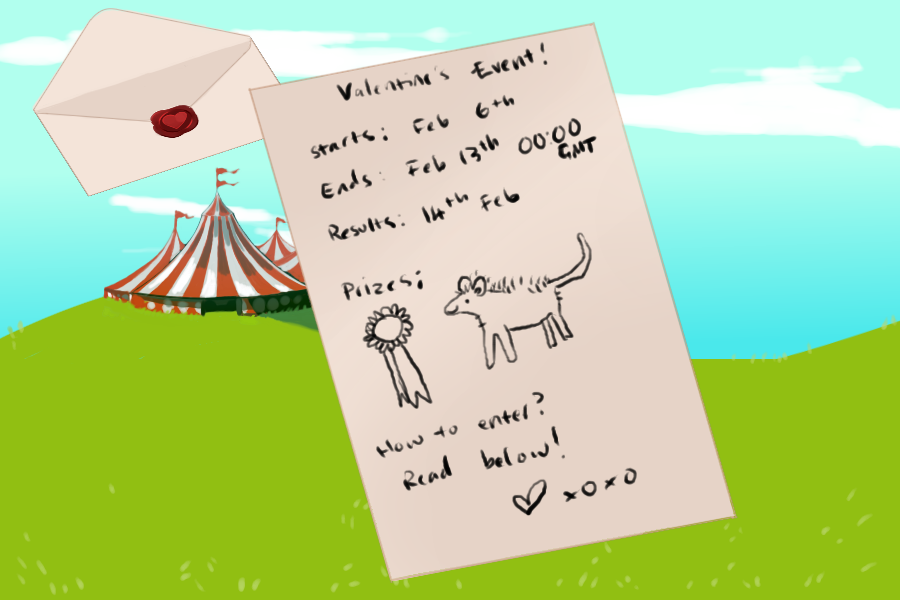 Valentine's Event!
starts: Feb 6th
Ends: Feb 13th 00:00
GMT
Results: 14th Feb
Prizes:
How to enter?
Read below!
♡ xoxo